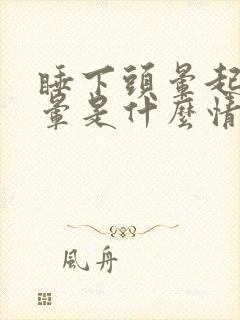 睡下頭暈起
暈是什麼情
風舟